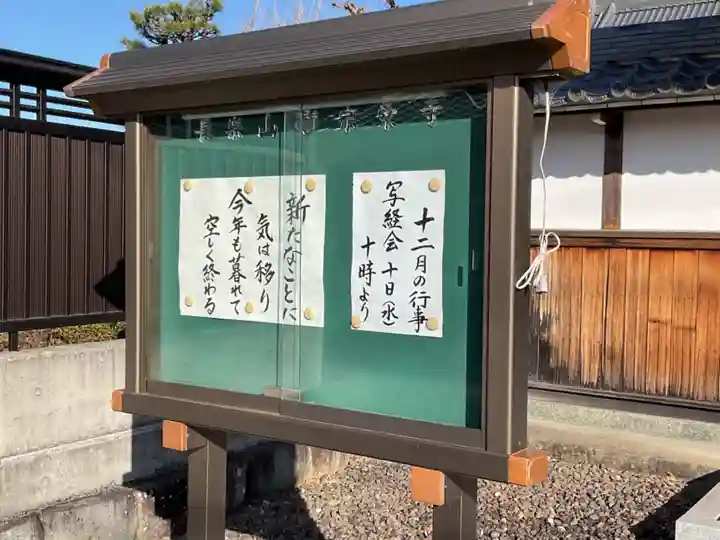 十二月の行事
写経会 十日(水)
十時より
新たなことに
気は移り
今年も暮れて
空しく終わる